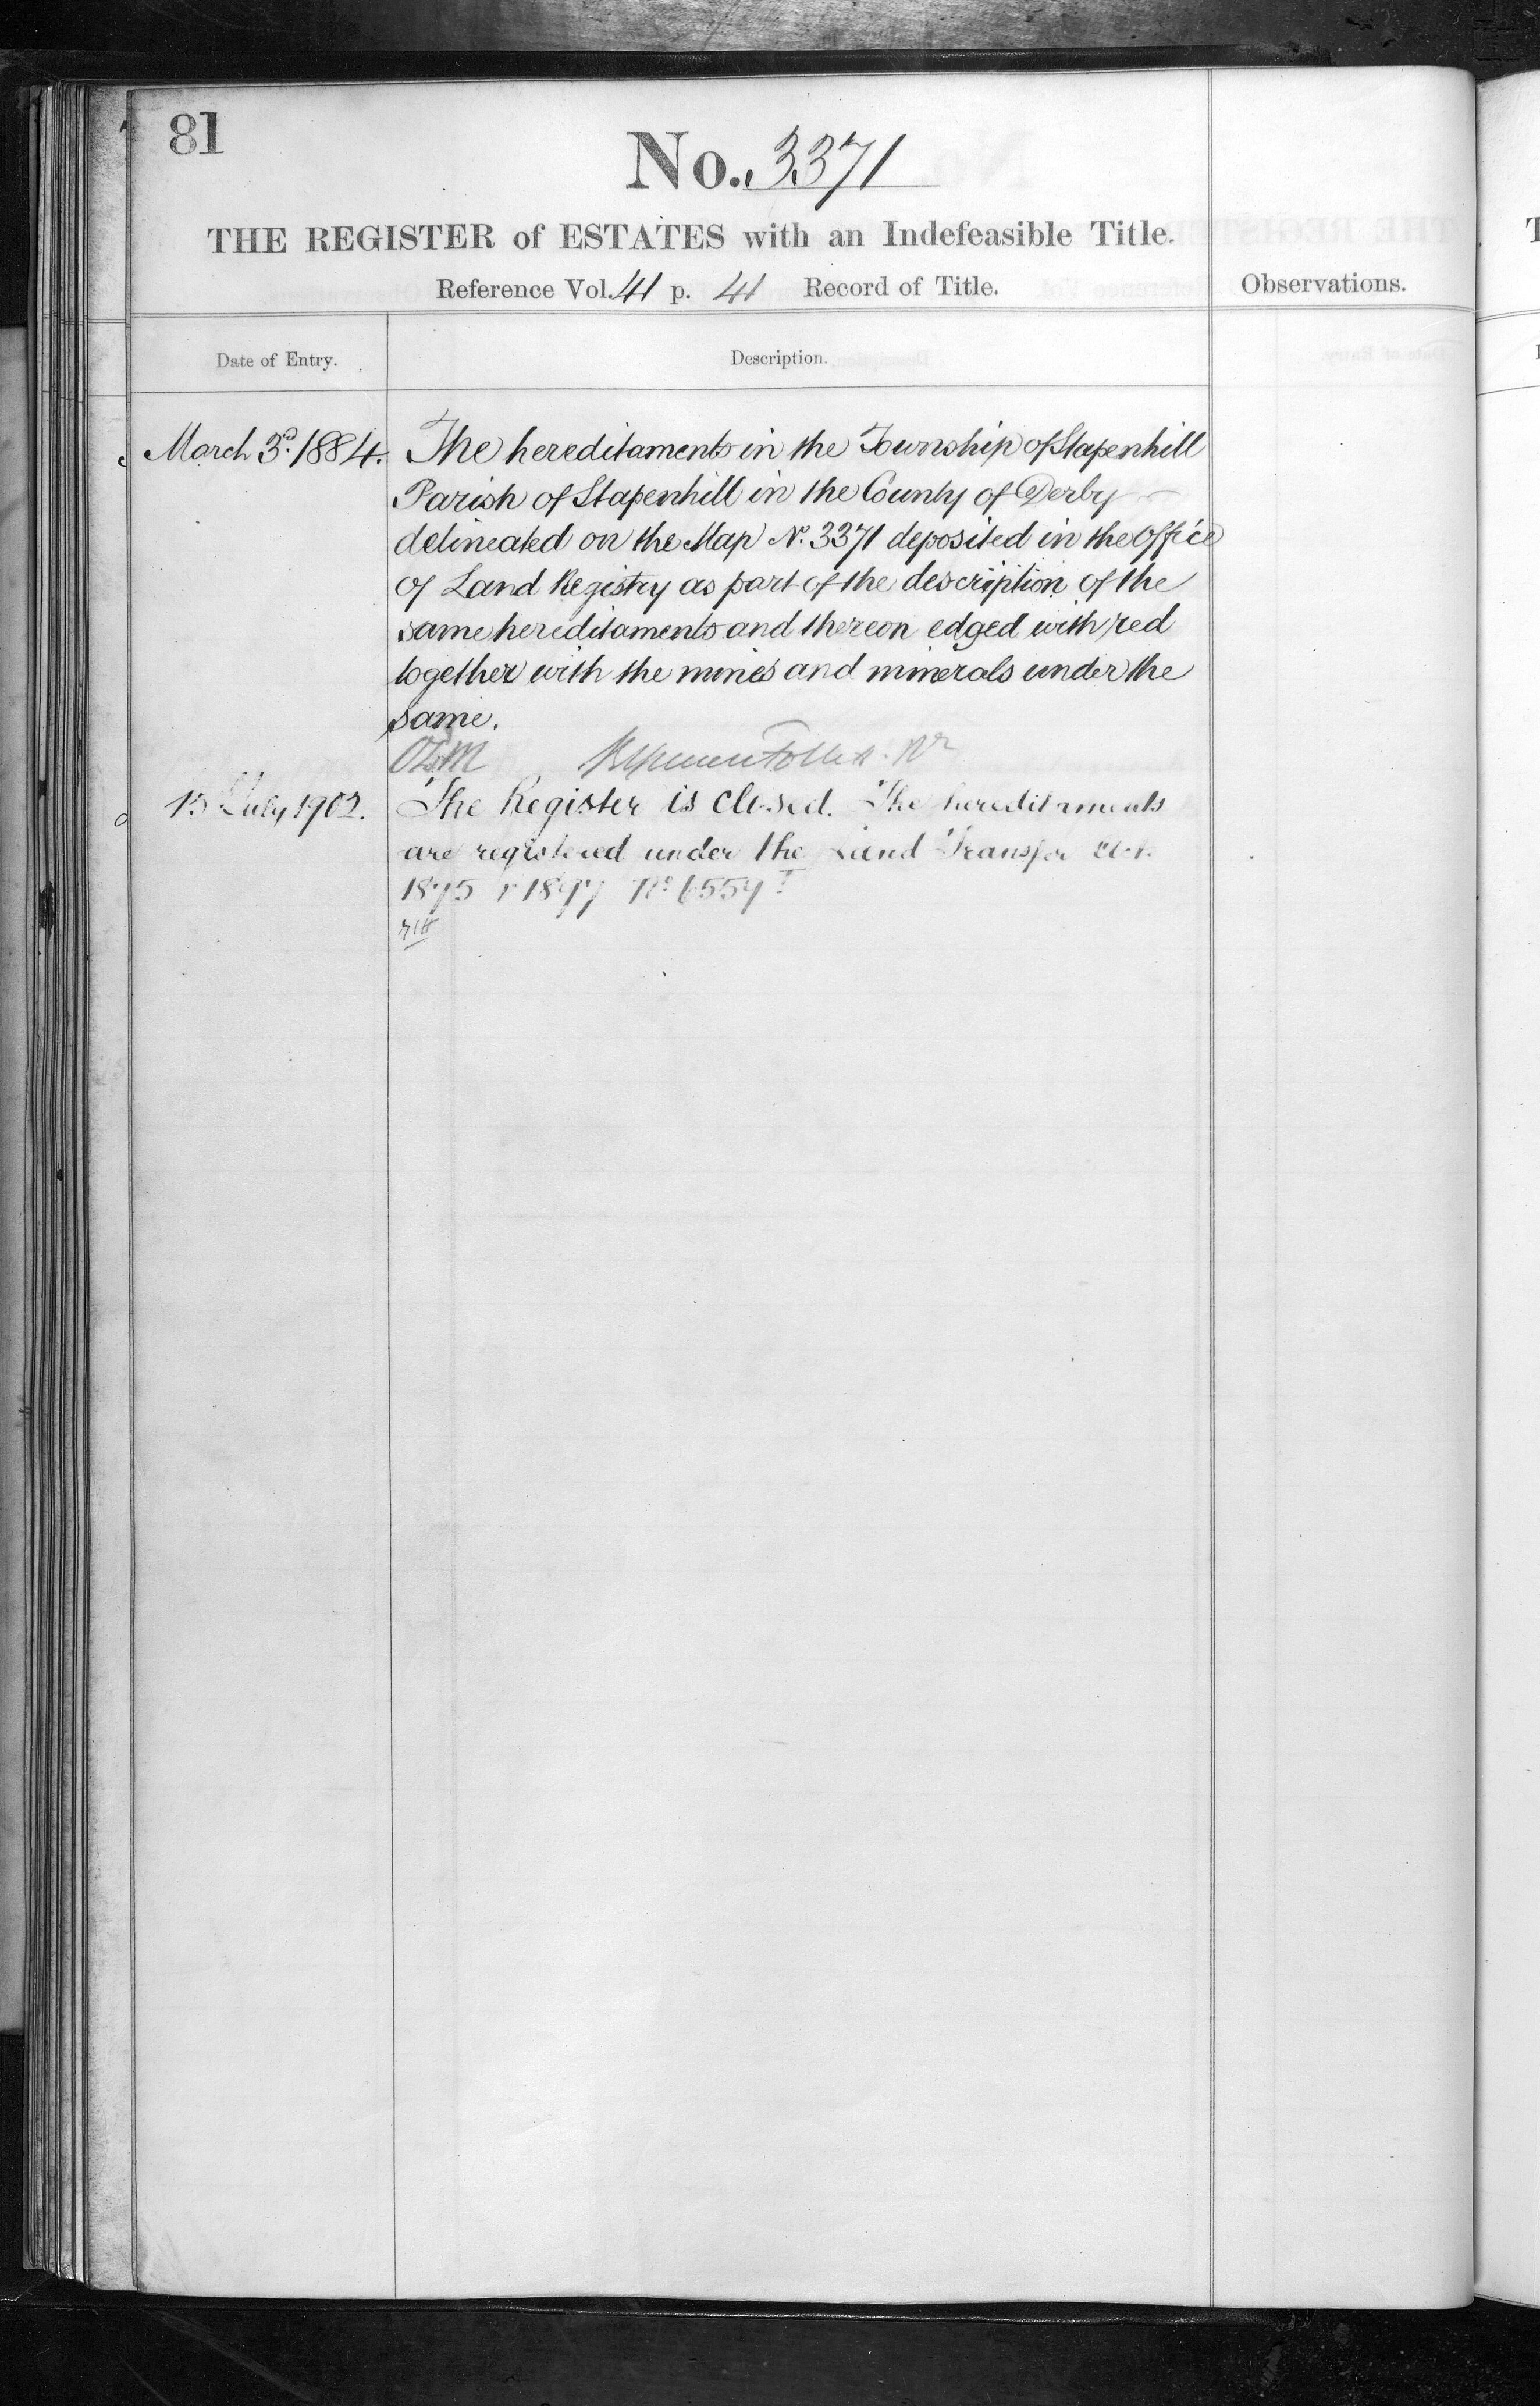 81
No. 3371
THE REGISTER of ESTATES with an Indefeasible Title.
Reference Vol. 41 p. 41 Record of Title.
Observations.
Date of Entry.
Description.
March 3d. 1884.
The hereditaments in the Township of Stapenhill
Parish of Stapenhill in the County of Derby
delineated on the Map No. 3371 deposited in the Office
of Land Registry as part of the description of the
same hereditaments and thereon edged with red
together with the mines and minerals under the
same.
15 July 1902.
The Register is closed. The hereditaments
are registered under the Land Transfer Act.
1875 & 1897 No